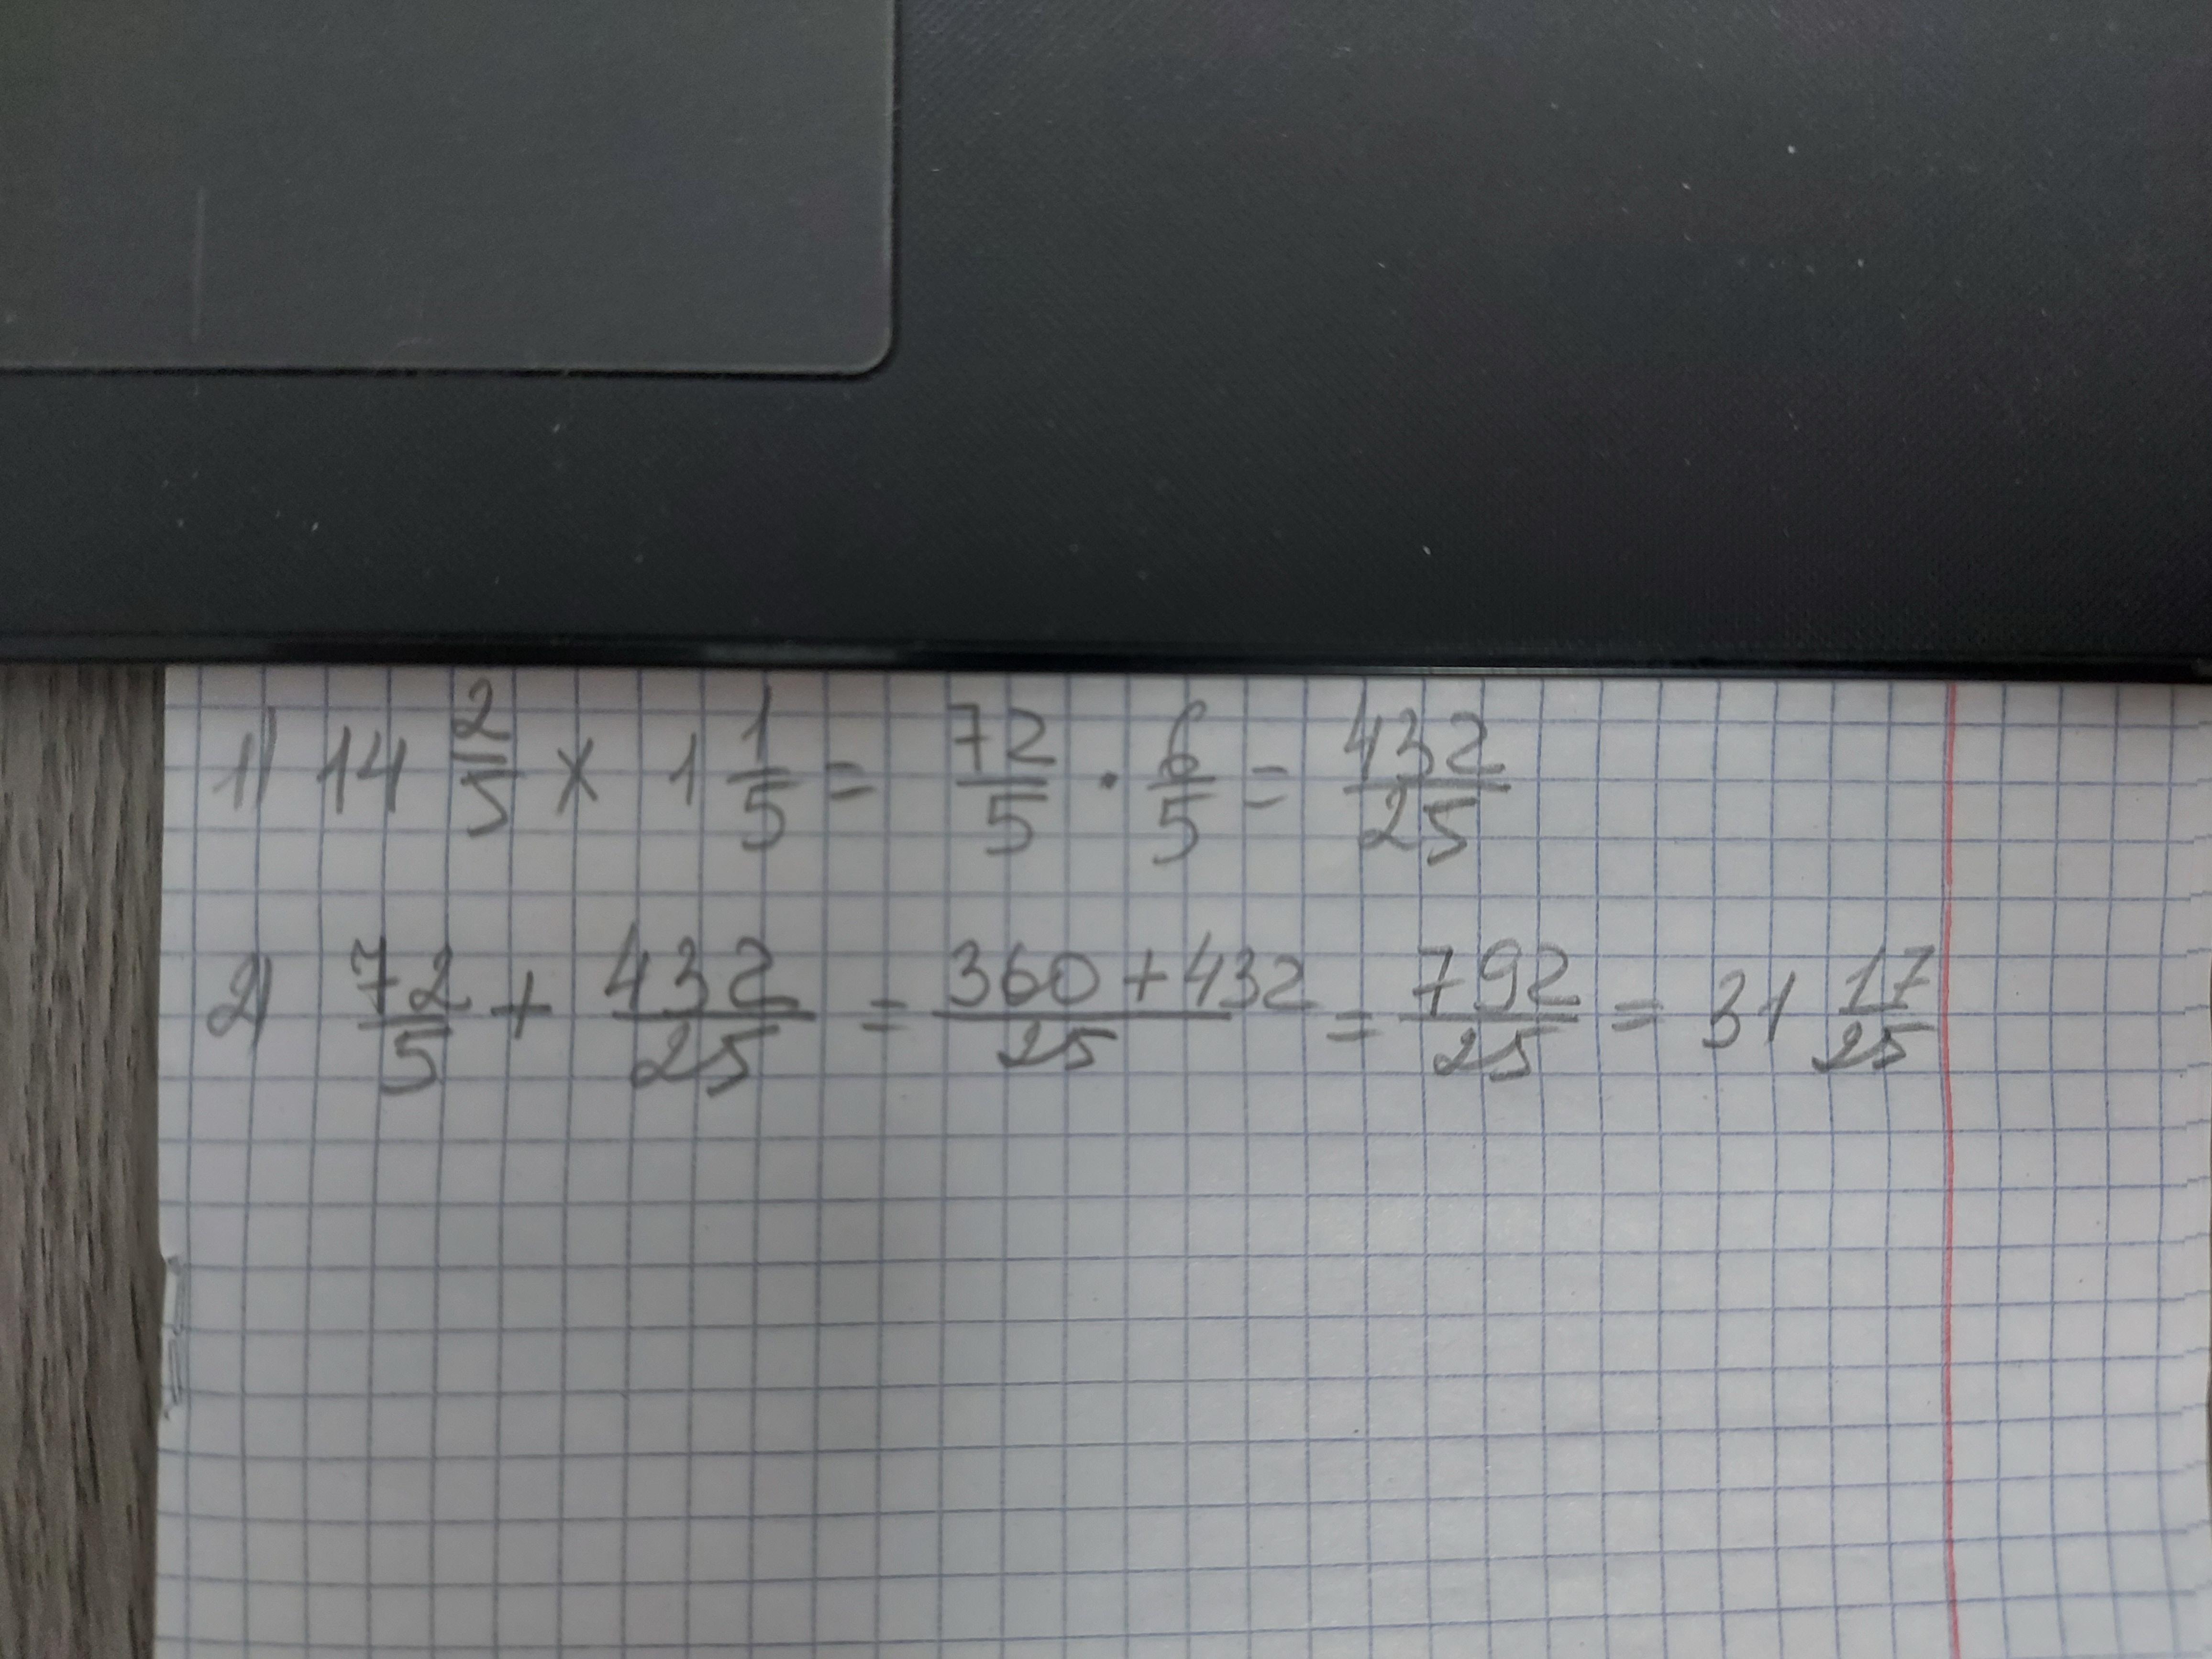 1) 14 2/5 × 1 1/5 = 72/5 · 6/5 = 432/25
2) 72/5 + 432/25 = 360+432/25 = 792/25 = 31 17/25